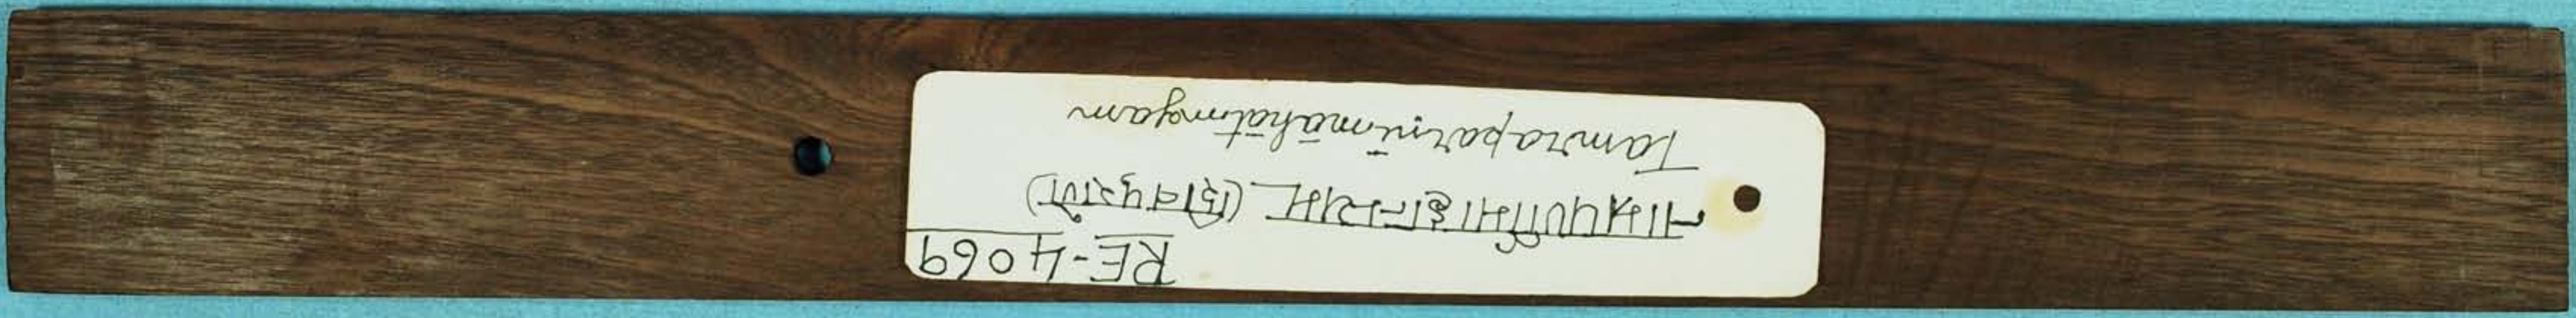 RE-4069
ताम्रपर्णीमाहात्म्यम् (शिवपुराणे)
Tāmraparṇīmāhātmyam